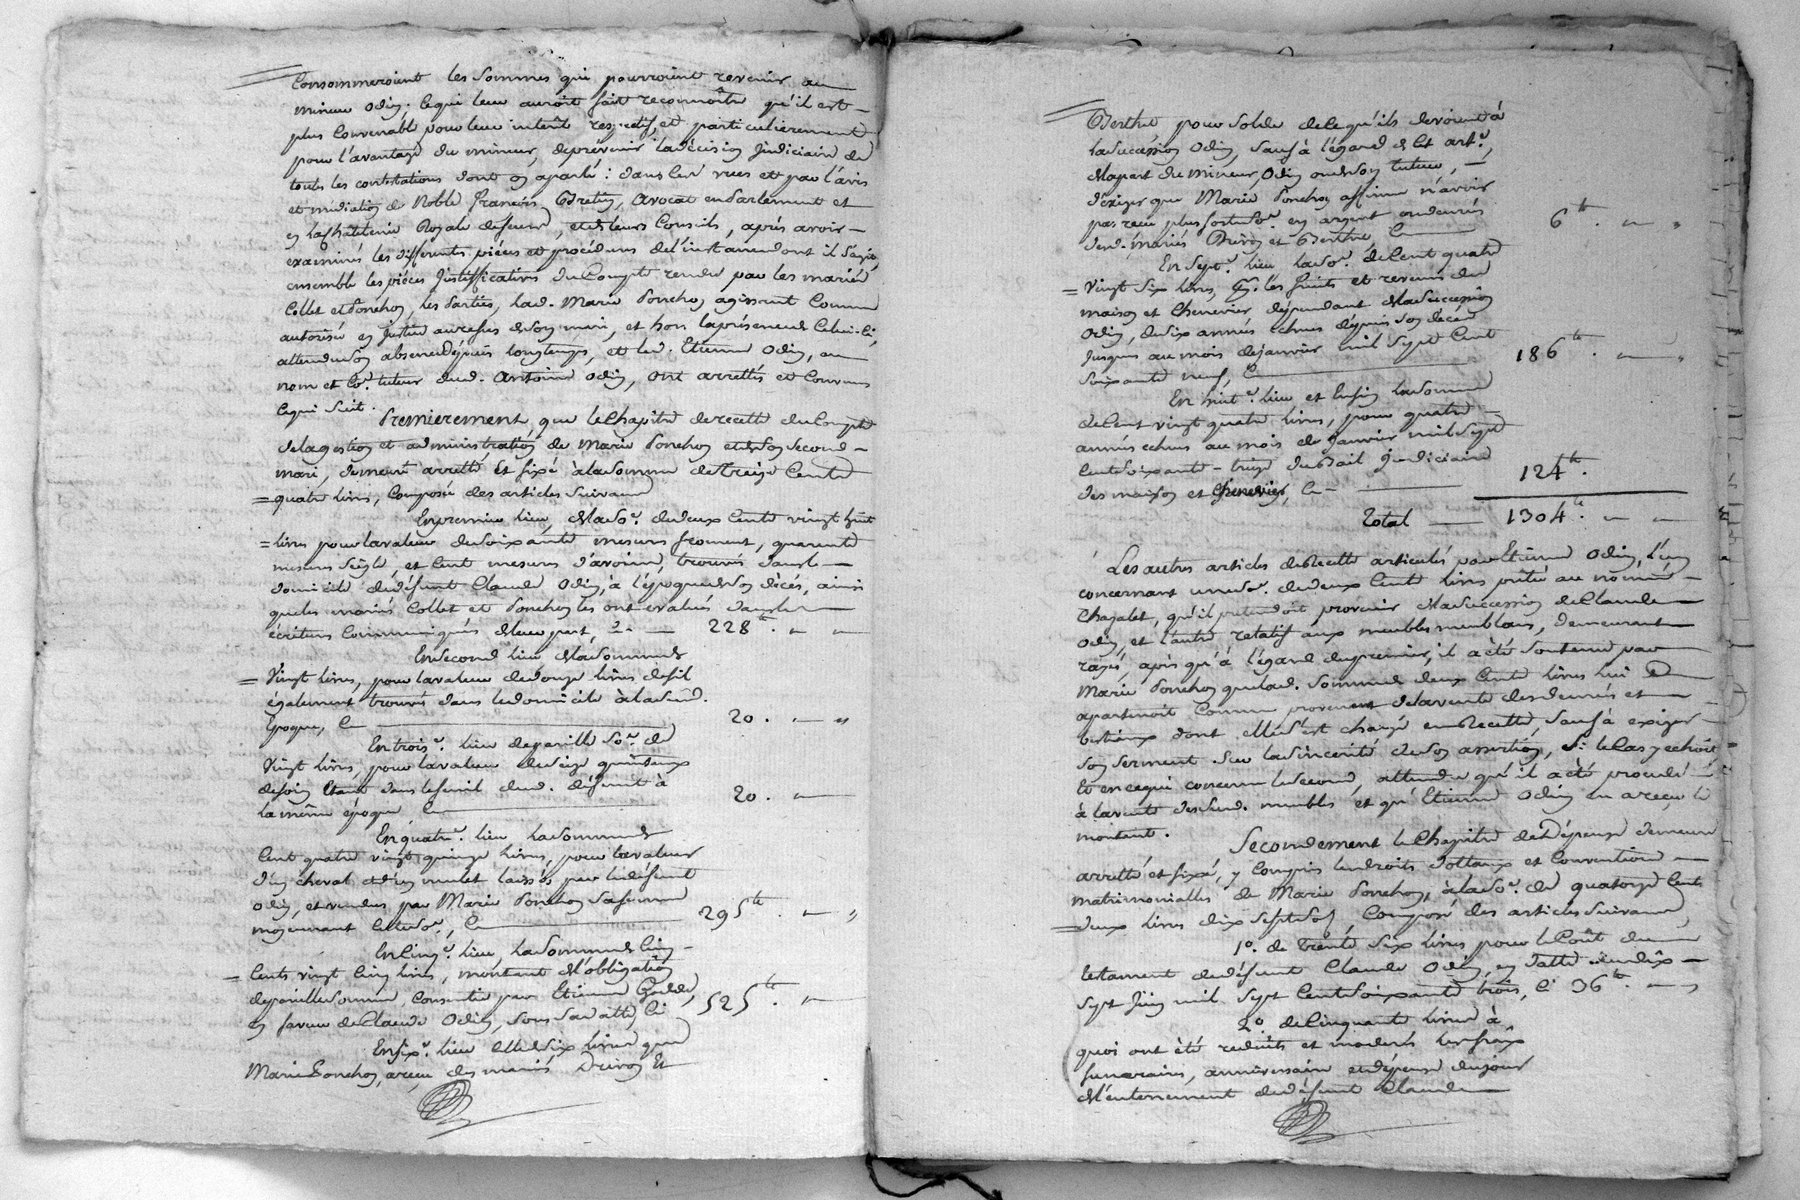 Consommeroient les sommes qui pourroient revenir au
mineur Odin; ce qui leur auroit fait reconnoître qu'il est
plus convenable pour leur intérêt respectif, et particulierement
pour l'avantage du mineur, de prévenir la décision judiciaire de
toutes les contestations dont on a parlé: dans ces vues et par l'avis
et médiation de Noble François Bretin, Avocat en Parlement et
en la Chatelenie Royale de, et de leurs Conseils, après avoir
examinés les différentes pièces et procédures de l'instance dont il s'agit,
ensemble les pièces justifficatives du Compte rendu par les mariés
Collet et Ponchon, les Parties, lad. Marie Ponchon agissant comme
autorisée en justice au refus de son mari, et hors la présence de celui-ci,
attendu son absence depuis longtemps, et led. Etienne Odin, au
nom et Co.e tuteur dud. Antoine Odin, ont arrettés et convenus
ce qui suit.
Premierement, que le Chapitre de recette du Compte
de la gestion et administration de Marie Ponchon et de son second
mari, demeure arretté et fixé à la somme de treize Cents
= quatre livres, composée des articles suivans
En premier lieu, de la so.e de deux Cents vingt huit
= livres pour la valeur de soixante mesures froment, quarente
mesures seigle, et cent mesures d'avoine, trouvés dans le
domicile du défunt Claude Odin, à l'époque de son décès, ainsi
que les mariés Collet et Ponchon les ont évalués dans les
écritures communiqués de leur part, Ci 228 lt. " "
En second lieu de la somme de
= Vingt livres, pour la valeur de douze livres de fil
également trouvés dans le domicile à la de
Epoque, Ci 20. " "
En trois.e lieu de pareille so.e de
vingt livres, pour la valeur de seize quintaux
de foin étant dans le fenil dud. défunt à
la même époque Ci 20. "
En quatr.e lieu la somme de
Cent quatre vingt quinze livres, pour la valeur
d'un cheval et d'un mulet laissés par le défunt
Odin, et vendus par Marie Ponchon sa femme
moyennant cette so.e, Ci 295 lt " "
En cinq.e lieu, la somme de Cinq
= Cents vingt cinq livres, montant de l'obligation
de pareille somme, consentie par Etienne
en faveur de Claude Odin, sous sa datte, Ci 525 lt. "
En six.e lieu celle de six livres que
Marie Ponchon, a reçu des mariés Drivon Et
Berthet pour solde de ce qu'ils devoient à
la succession Odin, sauf à l'égard de cet art.e,
de la part du mineur, Odin ou de son tuteur,
d'éxiger que Marie Ponchon affirme n'avoir
pas reçu plus forte so.e en argent ou denrées
desd. mariés Drivon et Berthet Ci 6 lt. " "
En sept.e lieu la so.e de Cent quatre
= Vingt six livres, p.r les fruits et revenus des
maison et Chenevier dépendant de la succession
Odin, de six années echues depuis son décès
jusques au mois de janvier mil sept Cent
soixante neuf, Ci 186 lt. " "
En huit.e lieu et Enfin la somme
de Cent vingt quatre livres, pour quatre
années echues au mois de janvier mil sept
Cent soixante-treize du Bail judiciaire
des maison et Chenevier, Ci 124 lt.
Total 1304 lt. " "
Les autres articles de Recette articulés par Etienne Odin, l'un
concernant une so.e de deux Cents livres prêtée au nommé
Chazalet, qu'il prétendoit provenir de la succession de Claude
Odin, et l'autre relatif aux meubles meublans, demeurant
rayés, après qu'à l'égard du premier, il a été soutenu par
Marie Ponchon que lad. somme de deux Cents livres lui
apartenoit comme provenant de la vente des denrées et
bestiaux dont elle s'est chargé en Recette, sauf à exiger
son serment sur la sincérité de son assertion, si le Cas y echoit
Et en ce qui concerne le second, attendu qu'il a été procédé
à la vente desd. meubles et qu'Etienne Odin en a reçu le
montant.
Secondement le Chapitre de Dépense demeure
arretté et fixé, y compris les droits dottaux et Conventions
matrimonialles de Marie Ponchon, à la so.e de quatorze Cent
= deux livres dix sept sols, composé des articles suivans,
1.° de Trente six livres pour le Coût du
testament du défunt Claude Odin, en datte du dix
sept juin mil sept Cent soixante trois, Ci 36 lt. " "
2.° de Cinquante livres à
quoi ont été réduits et modérés les fraix
funeraires, anniversaire et dépense du jour
de l'enterrement du défunt Claude